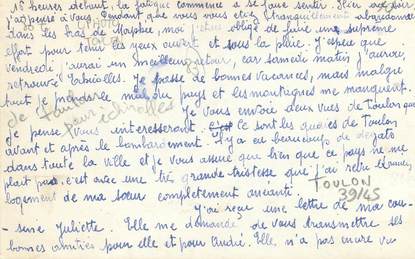 16 heures debout, la fatigue commence à se faire sentir. Hier soir
j'ai pensé à vous. Pendant que vous vous étiez tranquillement abandonnés
dans les bras de Morphée, moi j'étais obligé de faire une suprême
effort pour tenir les yeux ouvert et sous la pluie. J'espère que
vendredi j'aurai un meilleur retour, car samedi matin j'aurai
retrouvé Echirolles. Je passe de bonnes vacances, mais malgré
tout je mon pays et les montagnes me manquent.
Je vous envoie deux vues de Toulon que
je pense vous interesseront. ce sont les quais de Toulon
avant et après le bombardement. Il y a eu beaucoup de dégats
dans toute la ville et je vous assure que bien que ce pays ne me
plait pas c'est avec une très grande tristesse que j'ai revu
logement de ma sœur complètement anéanti.
TOULON
39/45
J'ai reçu une lettre de ma cou-
sine Juliette. Elle me demande de vous transmettre ses
bonnes amitiés pour elle et pour André. Elle n'a pas encore vu